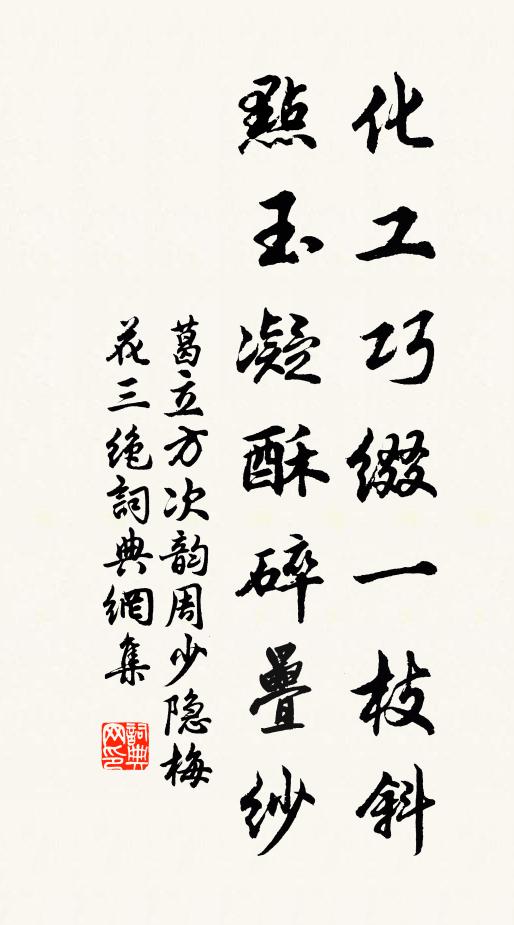 化工巧綴一枝斜
點玉凝酥碎疊紗
葛立方次韵周少隐梅
花三绝詞典網集
詞典网印